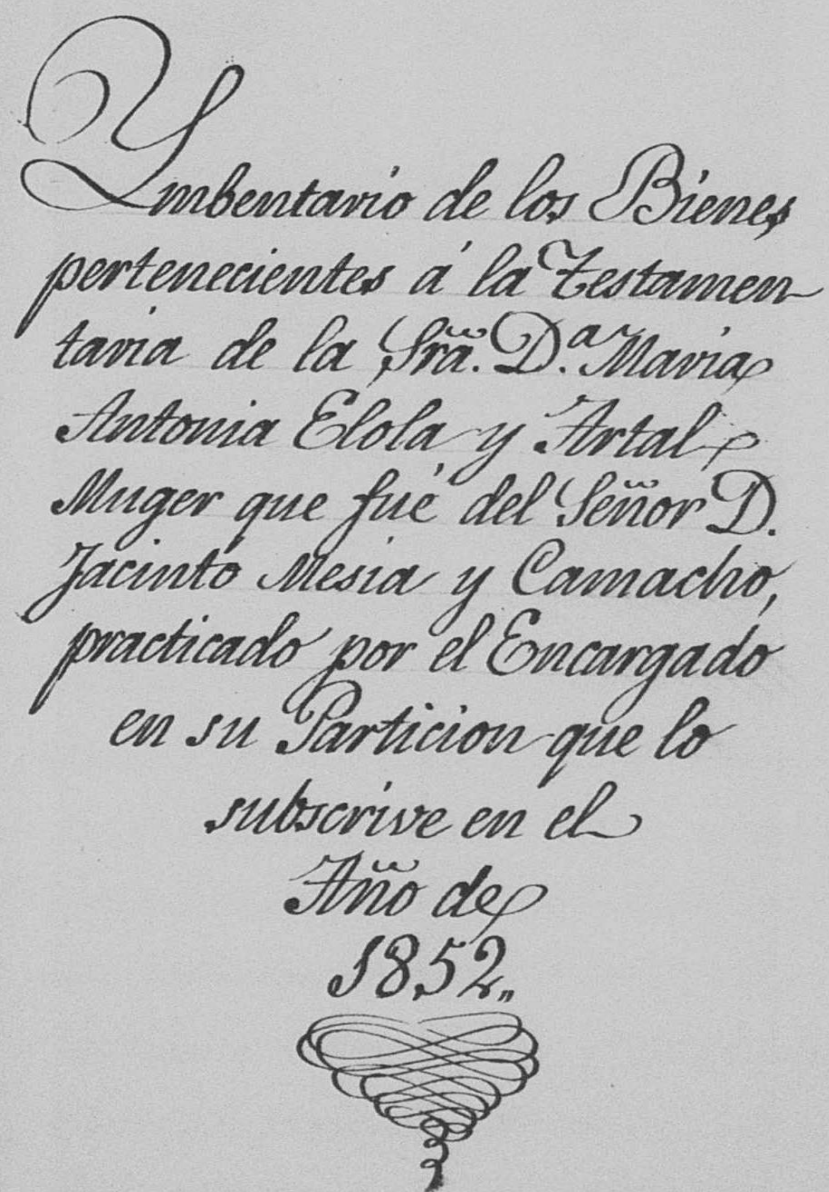 Ymbentario de los Bienes
pertenecientes á la Testamen-
taria de la Srã. D.ª Maria
Antonia Elola y Artal
Muger que fué del Señor D.
Jacinto Mesia y Camacho,
practicado por el Encargado
en su Particion que lo
subscrive en el
Año de
1852„